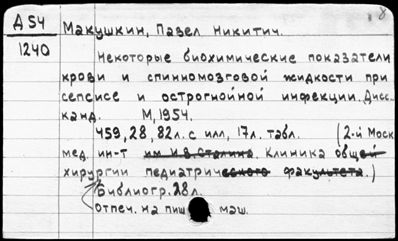 8
Д 54
1240
Макушкин, Павел Никитич.
Некоторые биохимические показатели
крови и спинномозговой жидкости при
сепсисе и острогнойной инфекции. Дисс.
канд. М, 1954.
459, 28, 82л. с илл, 17л. табл. (2-й Моск
мед. ин-т им И.В. Сталина. Клиника общей
хирургии педиатрического факультета.)
Библиогр. 28 л.
Отпеч. на пиш маш.